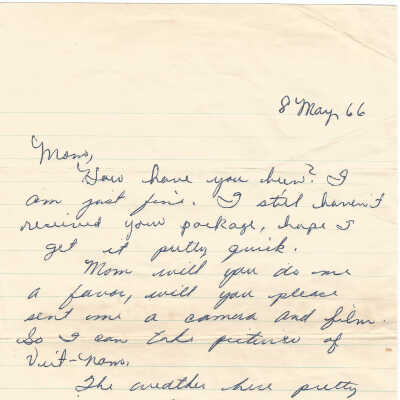 8 May 66
Mom,
How have you been? I
am just fine. I still haven't
received your package, hope I
get it pretty quick.
Mom will you do me
a favor, will you please
sent me a camera and film.
So I can take pictures of
Viet-Nam.
The weather here pretty